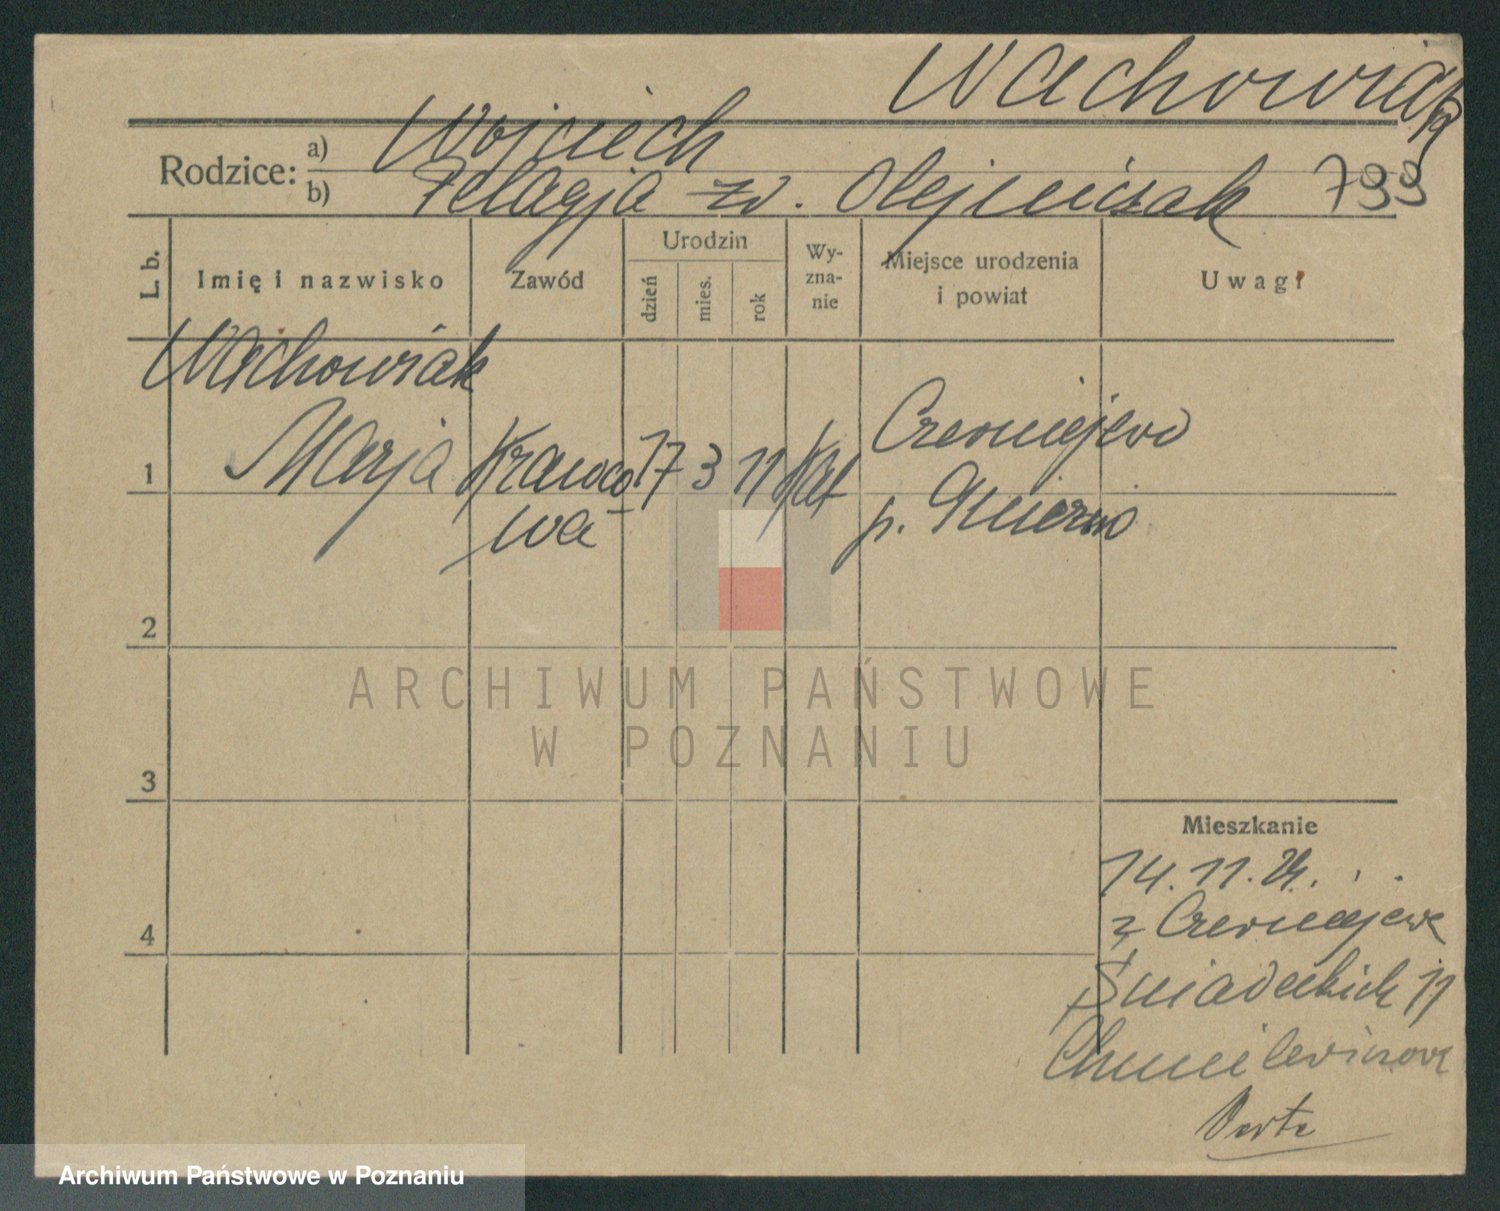 Wachowiak
Rodzice: a) Wojciech
b) Pelagja zd. Olejniczak 799
L. b. Imię i nazwisko Zawód Urodzin dzień mies. rok Wy-zna-nie Miejsce urodzenia i powiat Uwagi
Wachowiak
1 Marja Krawco 17 3 11 kat Czerniejewo
wa p. Gniezno
2
ARCHIWUM PAŃSTWOWE
W POZNANIU
3
Mieszkanie
14. 11. 29.
4 z Czerniejewa
Śniadeckich 11
Verte
Archiwum Państwowe w Poznaniu